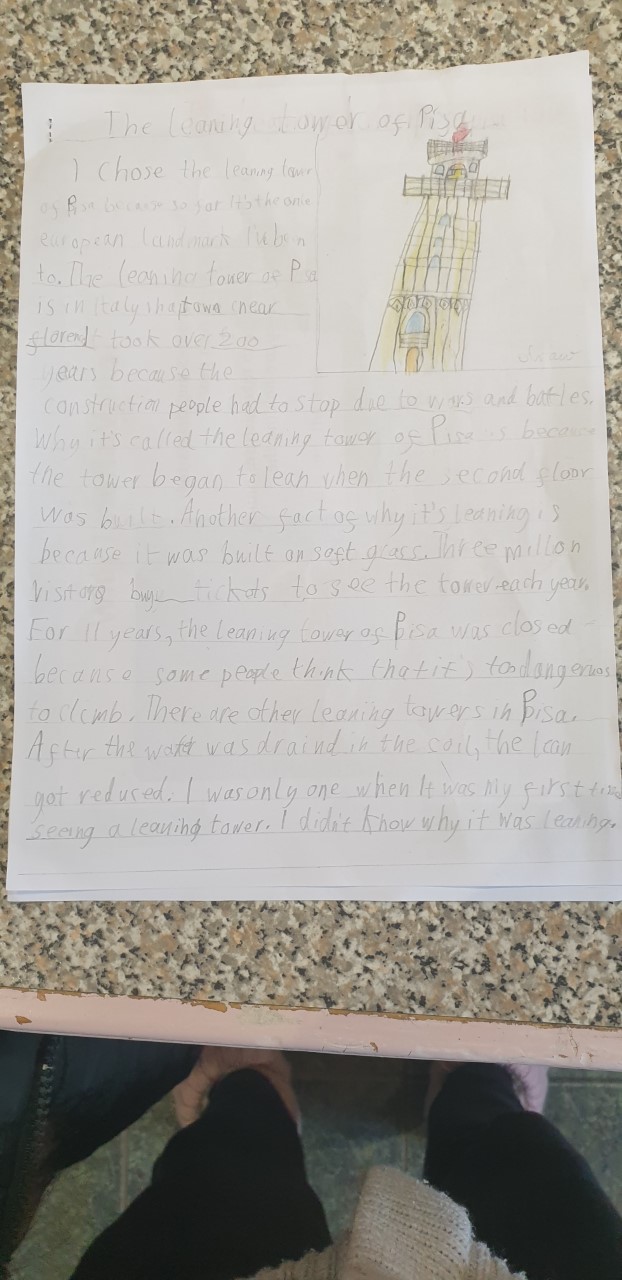 The leaning tower of Pisa
I chose the leaning tower
of Pisa because so far it's the onle
european landmark I'v ben
to. The leaning tower of Pisa
is in Italy near
took over 200
years because the
construction people had to stop due to wars and battles.
Why it's called the leaning tower of Pisa is because
the tower began to lean when the second floor
was built. Another fact of why it's leaning is
because it was built on soft grass. Three millon
visitors buy tickets to see the tower each year.
For 11 years, the leaning tower of Pisa was closed
because some people think that it's to dangerous
to climb. There are other leaning towers in Pisa.
After the water was draind in the soil, the lean
got redused. I was only one when it was my first time
seeing a leaning tower. I didn't know why it was leaning.